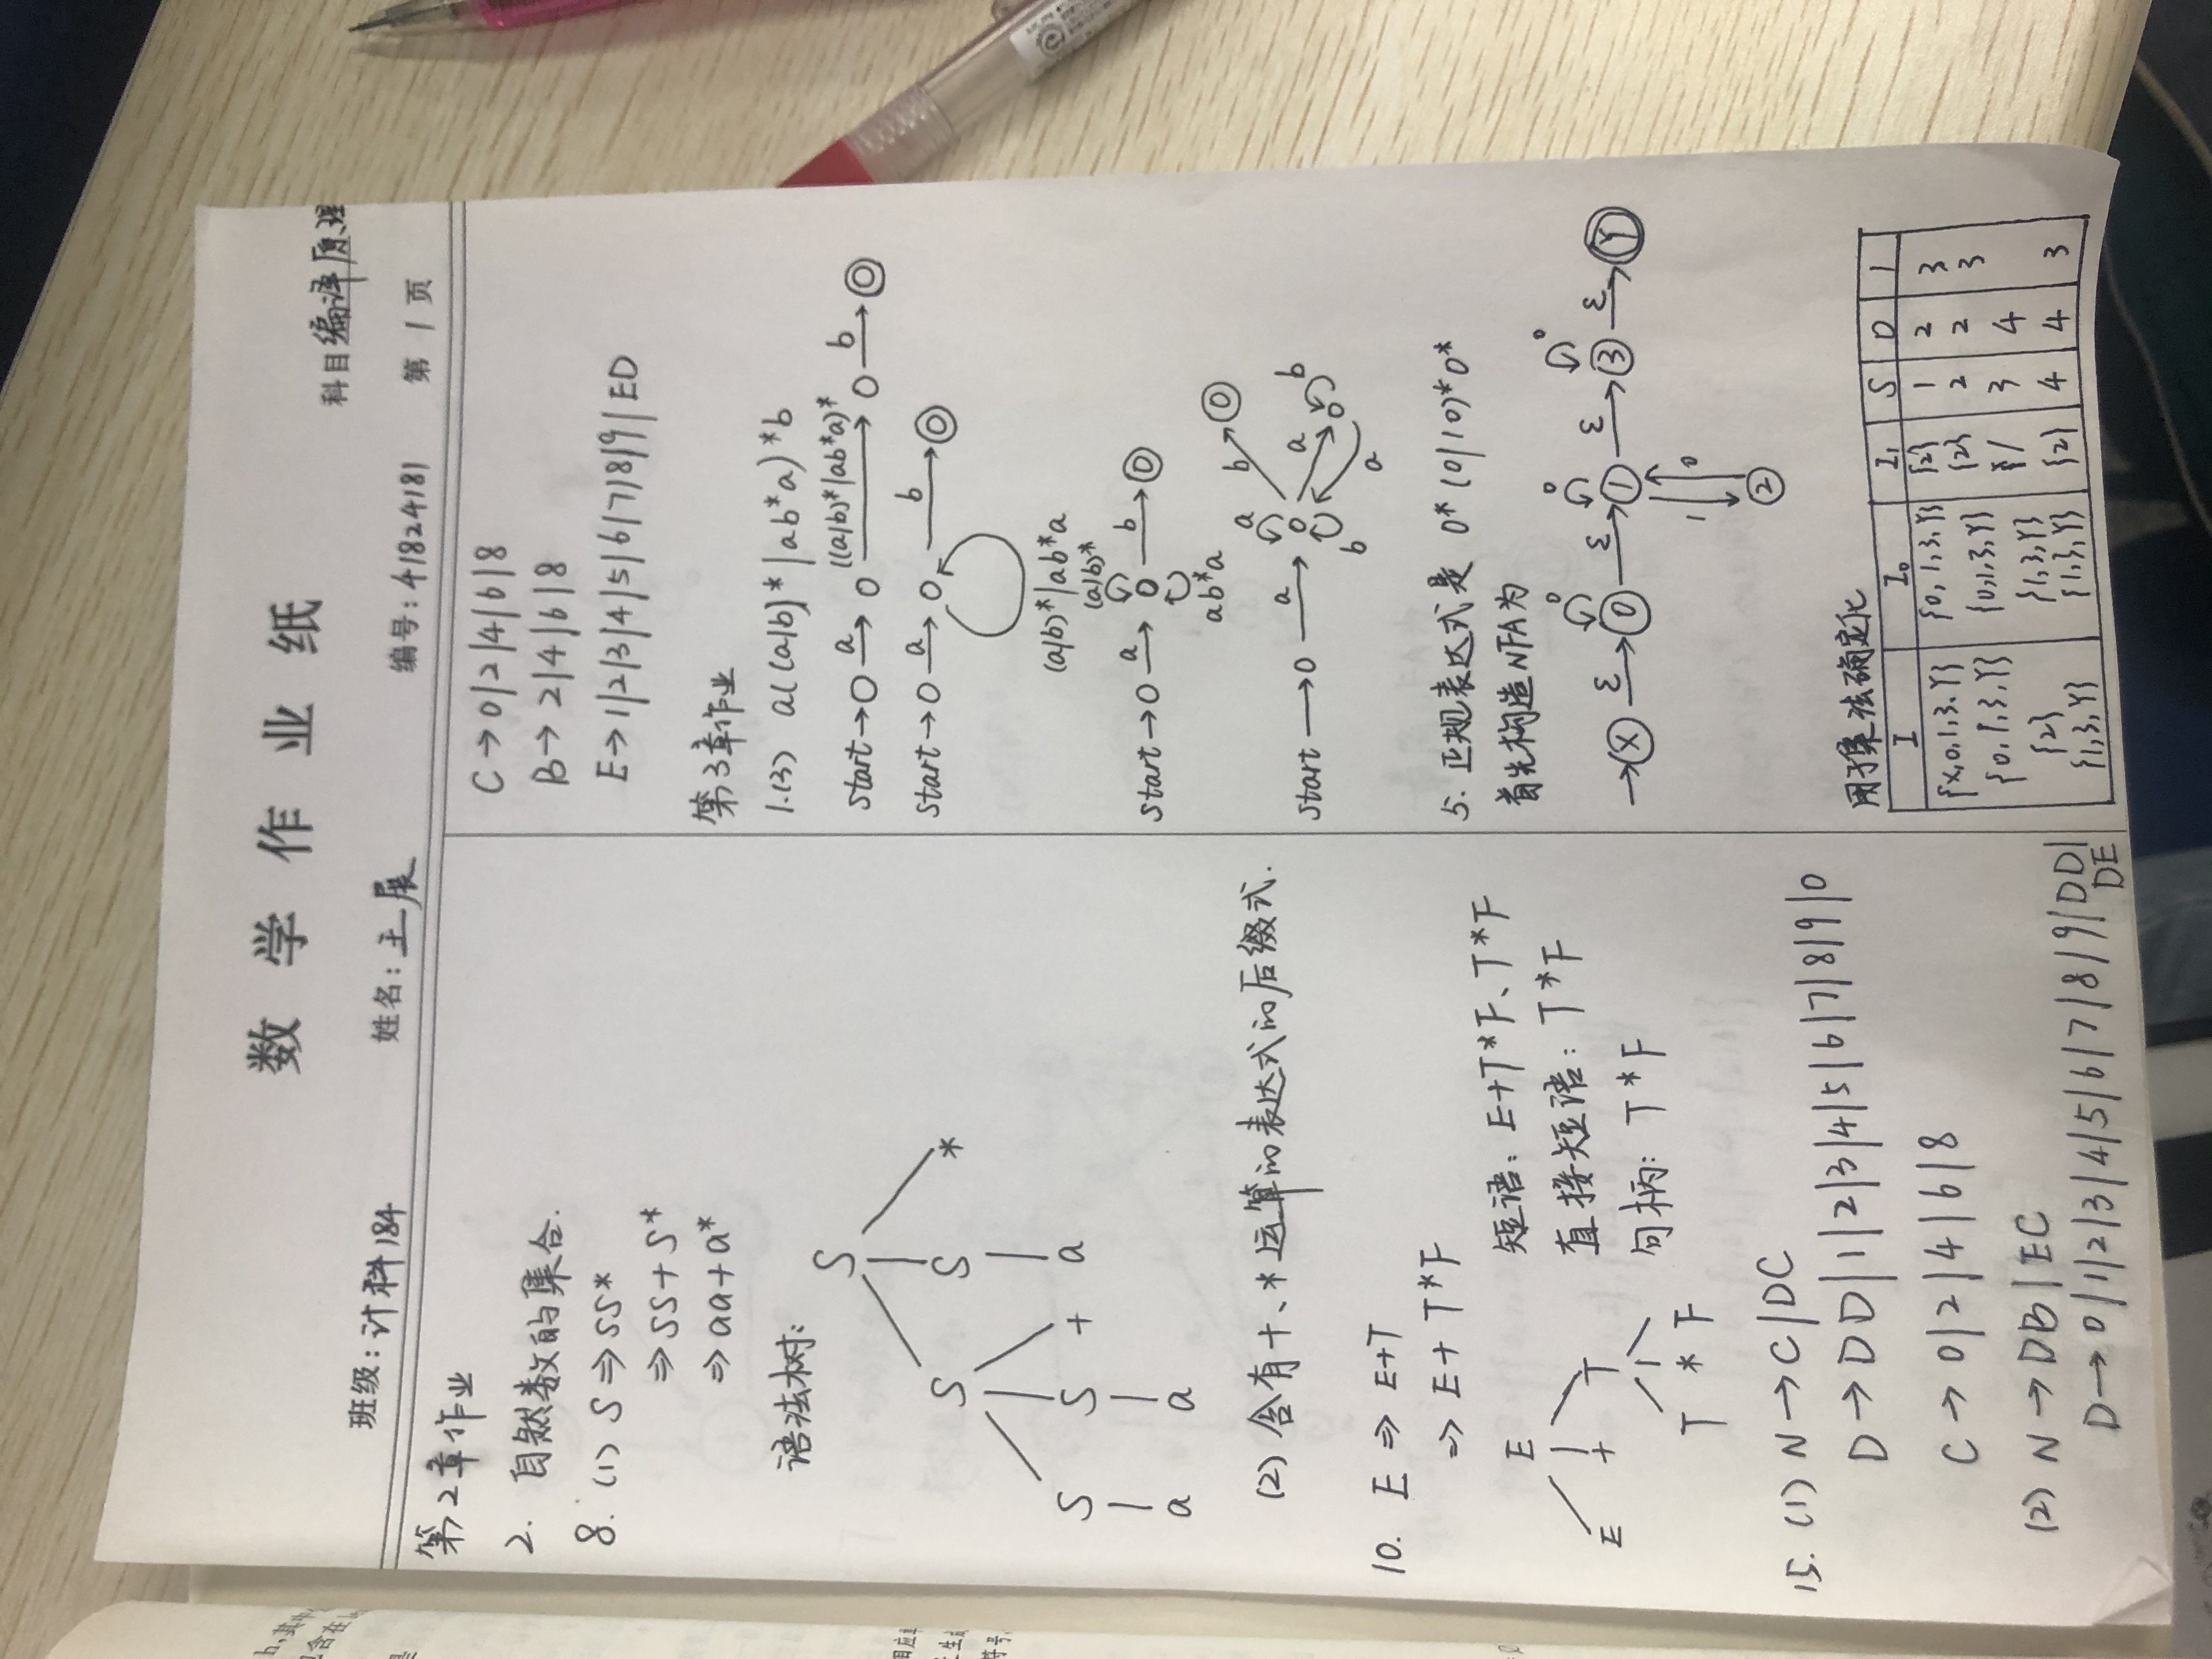 数学作业纸
科目编译原理
班级：计科184 姓名：王展 编号：41824181 第1页
第2章作业
2. 自然数的集合.
8. (1) S⇒SS*
⇒SS+S*
⇒aa+a*
语法树:
S
S S *
S S + a
a a
(2) 含有+、*运算的表达式的后缀式.
10. E ⇒ E+T
⇒ E+T*F
E
E + T
T * F
短语: E+T*F、T*F
直接短语: T*F
句柄: T*F
15. (1) N→C|DC
D→DD|1|2|3|4|5|6|7|8|9|0
C→0|2|4|6|8
(2) N→DB|EC
D→0|1|2|3|4|5|6|7|8|9|DD|
DE
C→0|2|4|6|8
B→2|4|6|8
E→1|2|3|4|5|6|7|8|9|ED
第3章作业
1.(3) a((a|b)*|ab*a)*b
start→ a ((a|b)*|ab*a)* b
start→ a b
(a|b)*|ab*a
(a|b)*
start→ a b
ab*a
start→ a a b b a b a
5. 正规表达式是 0*(0|10)*0*
首先构造NFA为
0 0 0
→X ε 0 ε 1 ε 3 ε Y
1 0
2
用子集法确定化
I I₀ I₁ S 0 1
{X,0,1,3,Y} {0,1,3,Y} {2} 1 2 3
{0,1,3,Y} {0,1,3,Y} {2} 2 2 3
{2} {1,3,Y} / 3 4
{1,3,Y} {1,3,Y} {2} 4 4 3
h,其中
包含在
是
相应
生成
符号,